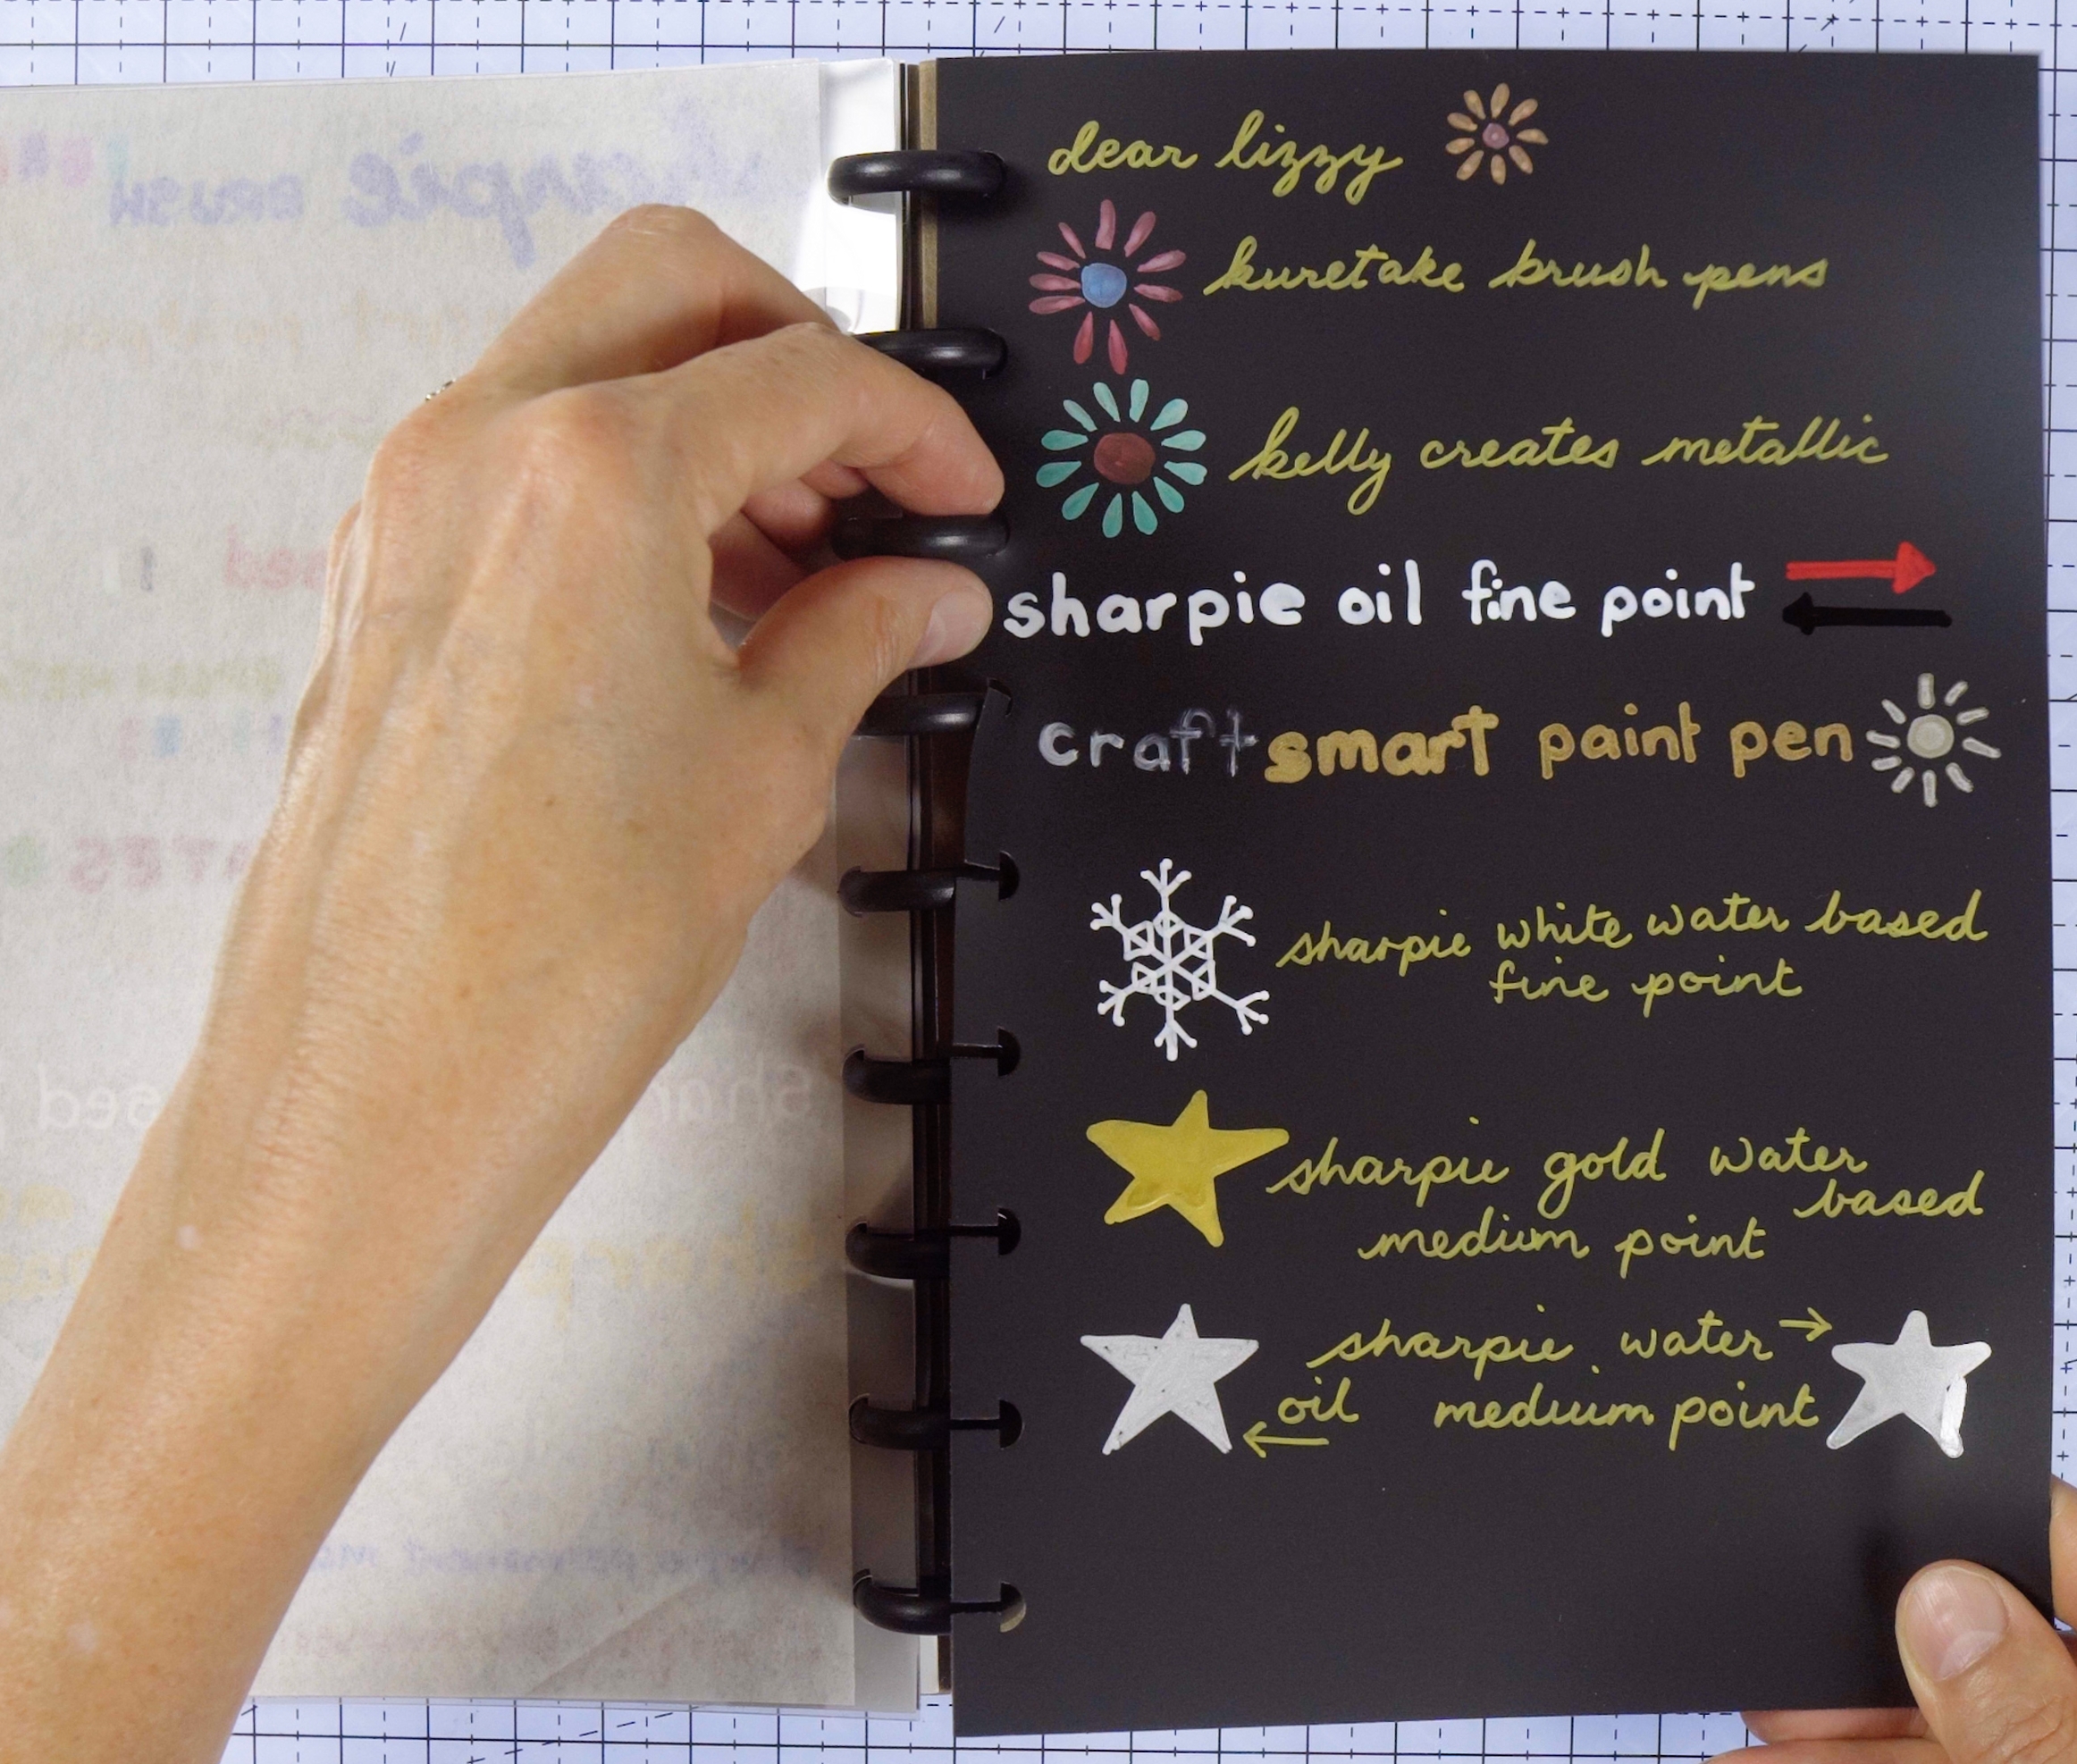 dear lizzy
kuretake brush pens
kelly creates metallic
sharpie oil fine point
craft smart paint pen
sharpie white water based
fine point
sharpie gold water
based
medium point
sharpie water
oil medium point